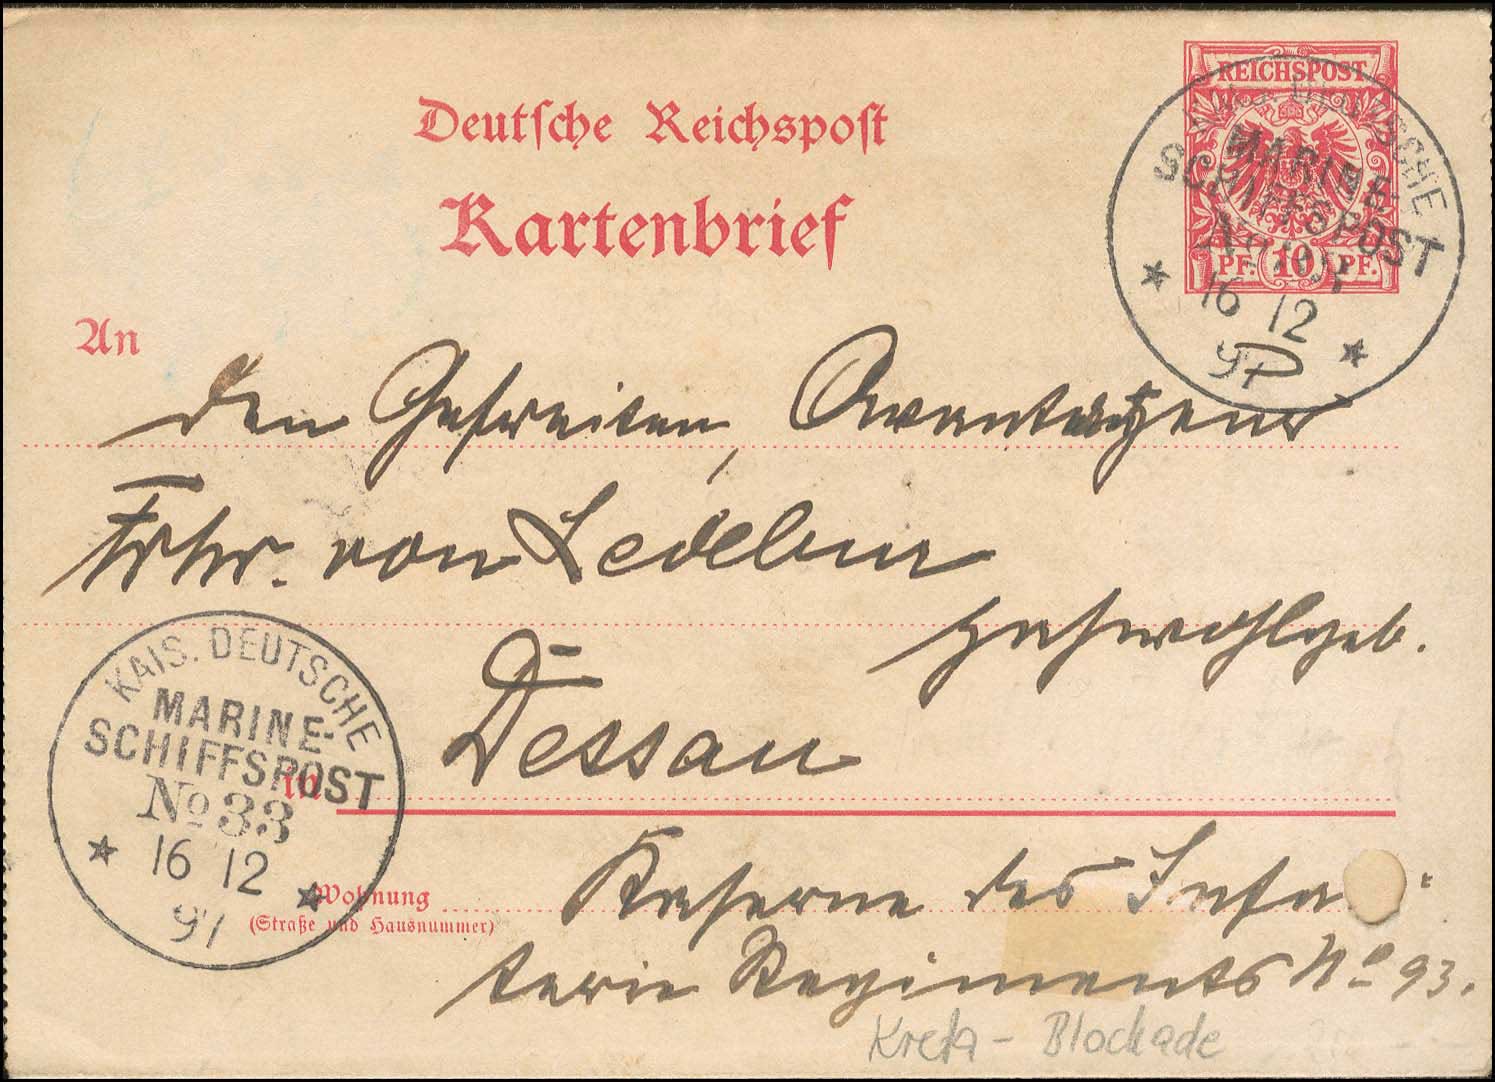 REICHSPOST
PF. 10 PF.
DEUTSCHE
MARINE-
SCHIFFSPOST
No
16 12
97
Deutsche Reichspost
Kartenbrief
An
den Gefreiten, Avantageur
Frhr. von Ledebur
Hochwohlgeb.
KAIS. DEUTSCHE
MARINE-
SCHIFFSPOST
No 33
16 12
97
in
Dessau
Wohnung
(Straße und Hausnummer)
Kaserne des Infan
terie Regiments No 93.
Kreta - Blockade